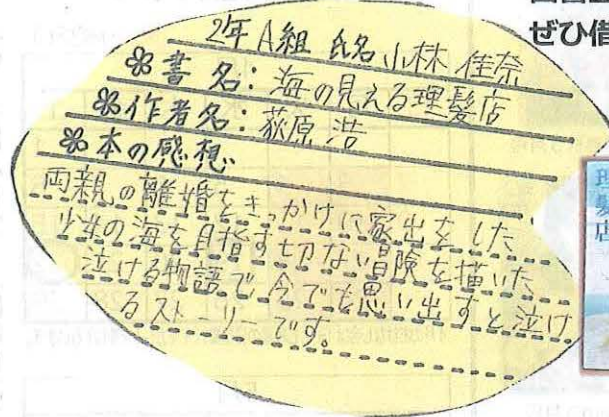 ぜひ借
2年A組 氏名 小林 佳奈
書名:海の見える理髪店
作者名:荻原 浩
本の感想
両親の離婚をきっかけに家出をした
少年の海を目指す切ない冒険を描いた
泣ける物語で今でも思い出すと泣け
るストーリーです。
理髪店